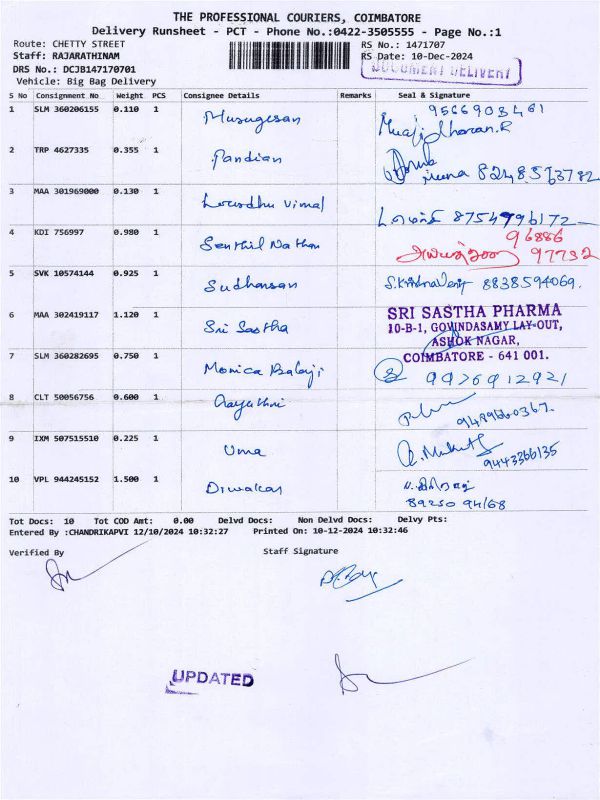 THE PROFESSIONAL COURIERS, COIMBATORE
Delivery Runsheet - PCT - Phone No.:0422-3505555 - Page No.:1
Route: CHETTY STREET RS No.: 1471707
Staff: RAJARATHINAM RS Date: 10-Dec-2024
DRS No.: DCJB147170701 DOCUMENT DELIVERY
Vehicle: Big Bag Delivery
S No Consignment No Weight PCS Consignee Details Remarks Seal & Signature
1 SLM 360206155 0.110 1 Murugesan
2 TRP 4627335 0.355 1 Pandian
3 MAA 301969000 0.130 1 Lourdhu Vimal 8754796172
4 KDI 756997 0.980 1 Senthil Nathan 96886
97732
5 SVK 10574144 0.925 1 Sudharsan S.Krishnaveni 8838594069.
6 MAA 302419117 1.120 1 Sri Sastha SRI SASTHA PHARMA
10-B-1, GOVINDASAMY LAY-OUT,
ASHOK NAGAR,
COIMBATORE - 641 001.
7 SLM 360282695 0.750 1 Monica Balaji 9976912921
8 CLT 50056756 0.600 1 Gayathri
9 IXM 507515510 0.225 1 Uma 9443366135
10 VPL 944245152 1.500 1 Diwakar
89250 94168
Tot Docs: 10 Tot COD Amt: 0.00 Delvd Docs: Non Delvd Docs: Delvy Pts:
Entered By :CHANDRIKAPVI 12/10/2024 10:32:27 Printed On: 10-12-2024 10:32:46
Verified By Staff Signature
UPDATED